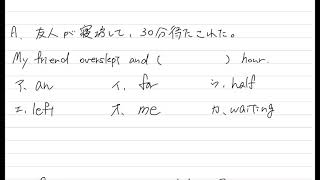 A. 友人が寝坊して、30分待たされた。
My friend overslept and ( ) hour.
ア. an イ. for ウ. half
エ. left オ. me カ. waiting